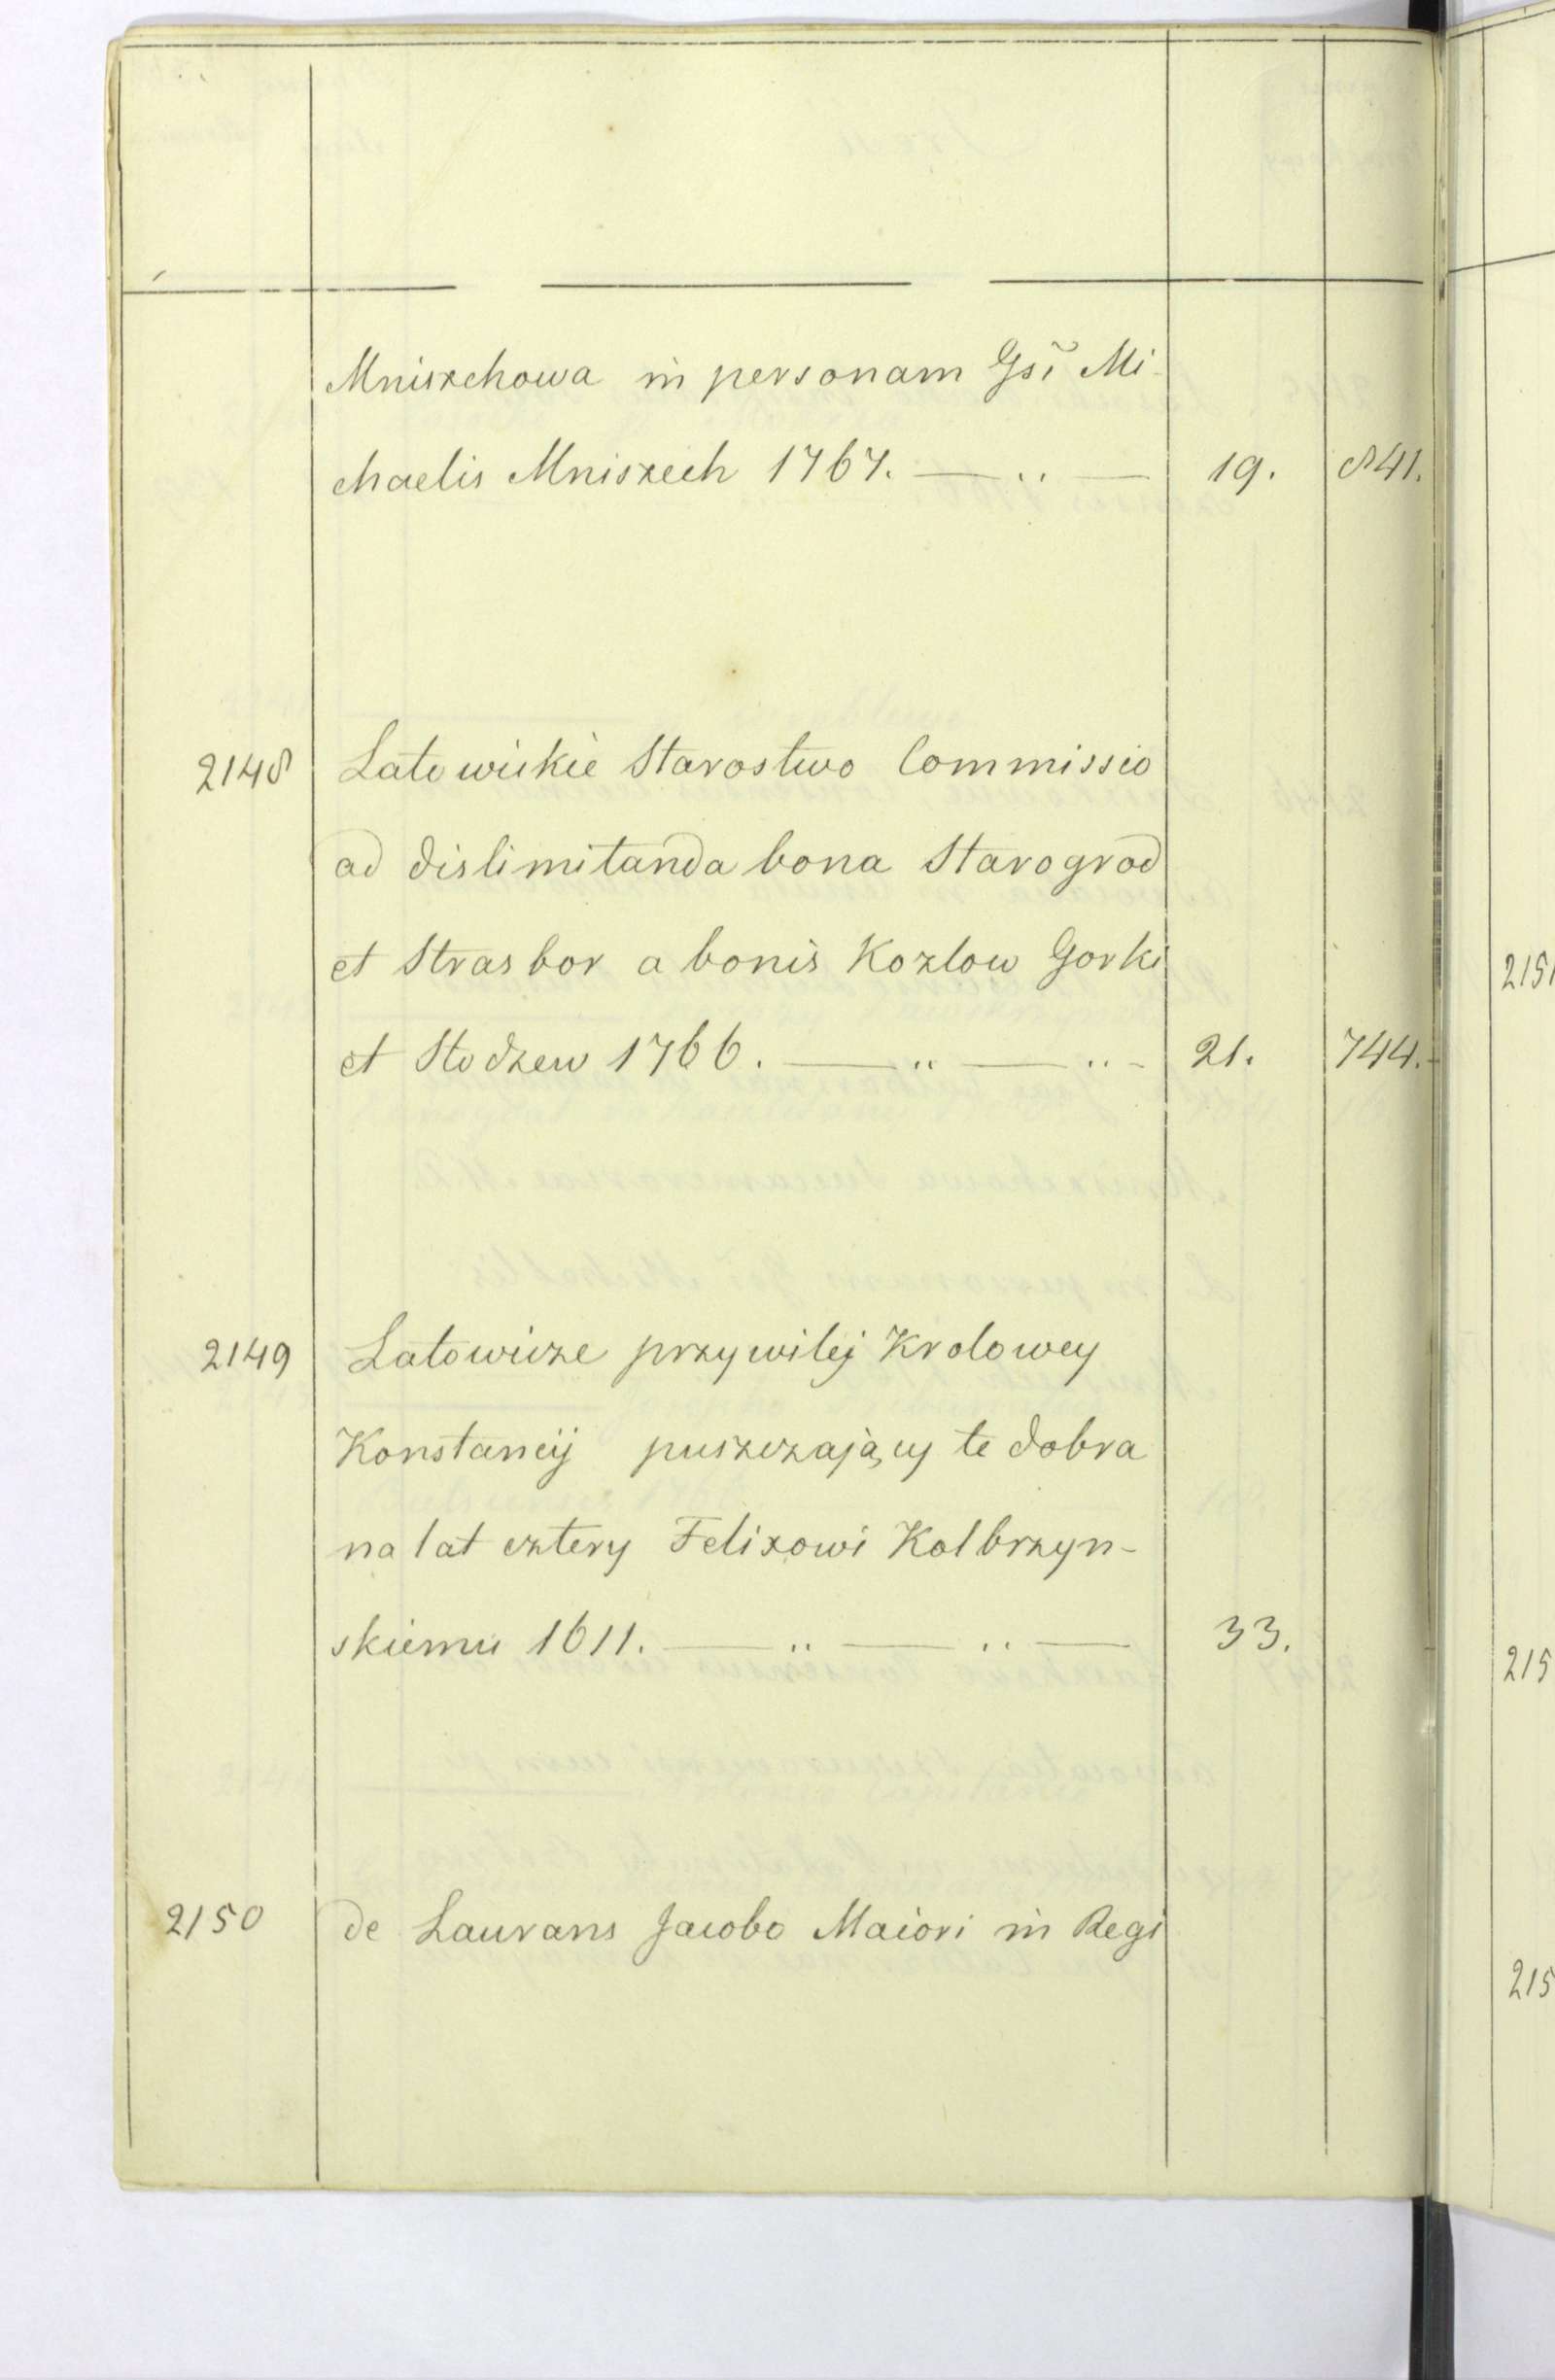 Mniszchowa in personam Gsi Mi-
chaelis Mniszech 1767. 19. 841.
2148 Latowickie Starostwo Commissio
ad dislimitanda bona Starogrod
et Strasbor a bonis Kozlow Gorki
et Stodzew 1766. 21. 744.
2149 Latowicze przywilej Krolowey
Konstancij puszczający te dobra
na lat cztery Felixowi Kolbrzyn-
skiemu 1611. 33.
2150 de Laurans Jacobo Maiori in Regi